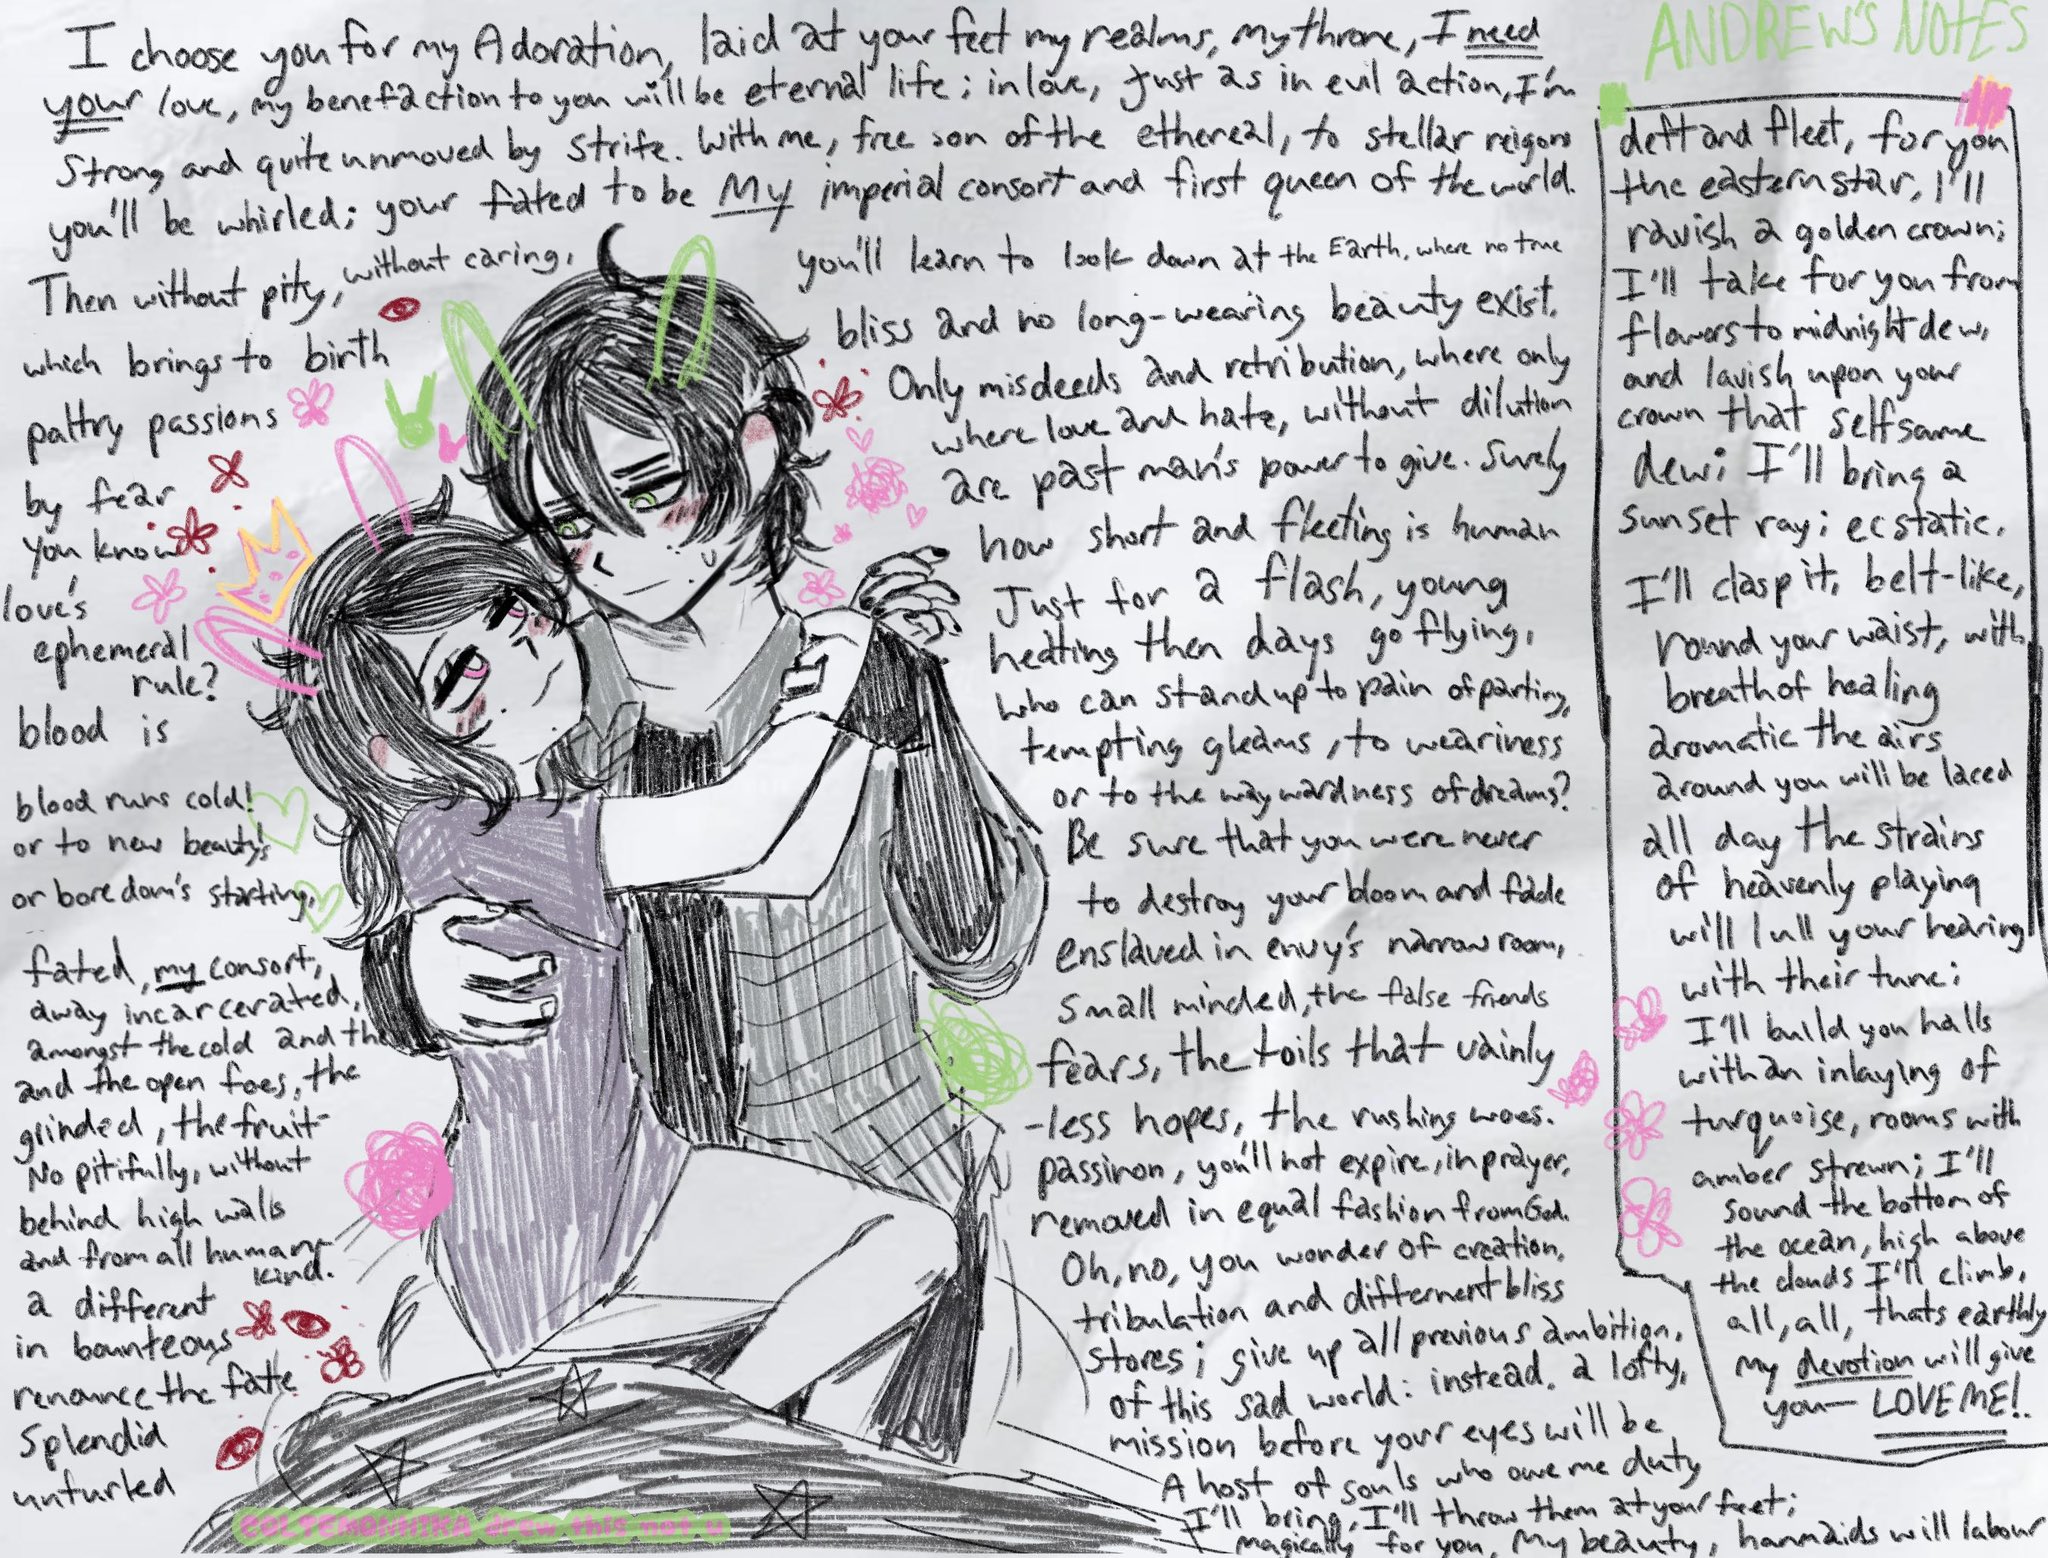 I choose you for my Adoration, laid at your feet my realms, my throne, I need
your love, my benefaction to you will be eternal life; in love, just as in evil action, I'm
strong and quite unmoved by strife. With me, free son of the ethereal, to stellar reigons
you'll be whirled; your fated to be My imperial consort and first queen of the world.
Then without pity, without caring,
which brings to birth
paltry passions
by fear
you know
love's
ephemeral
rule?
blood is
blood runs cold!
or to new beauty's
or boredom's starting,
fated, my consort,
away incarcerated,
amongst the cold and the
and the open foes, the
grinded, the fruit-
No pitifully, without
behind high walls
and from all human-
kind.
a different
in bounteous
renounce the fate
Splendid
unfurled
you'll learn to look down at the Earth, where no true
bliss and no long-wearing beauty exist.
Only misdeeds and retribution, where only
where love and hate, without dilution
are past man's power to give. Surely
how short and fleeting is human
Just for a flash, young
heating then days go flying,
who can stand up to pain of parting,
tempting gleams, to weariness
or to the waywardness of dreams?
Be sure that you were never
to destroy your bloom and fade
enslaved in envy's narrow room,
small minded, the false friends
fears, the toils that vainly
-less hopes, the rushing woes.
passinon, you'll not expire, in prayer,
removed in equal fashion from God.
Oh, no, you wonder of creation,
tribulation and differnent bliss
stores; give up all previous ambition,
of this sad world: instead. a lofty,
mission before your eyes will be
A host of souls who owe me duty
I'll bring, I'll throw them at your feet;
magically for you, My beauty, hanmaids will labour
ANDREW'S NOTES
deft and fleet, for you
the eastern star, I'll
ravish a golden crown;
I'll take for you from
flowers to midnight dew,
and lavish upon your
crown that selfsame
dew; I'll bring a
sunset ray; ecstatic.
I'll clasp it, belt-like,
round your waist, with
breath of healing
aromatic the airs
around you will be laced
all day the strains
of heavenly playing
will lull your hearing
with their tune;
I'll build you halls
with an inlaying of
turquoise, rooms with
amber strewn; I'll
sound the bottom of
the ocean, high above
the clouds I'll climb,
all, all, thats earthly
my devotion will give
you— LOVE ME!.
COLTEMONNIKA drew this not u